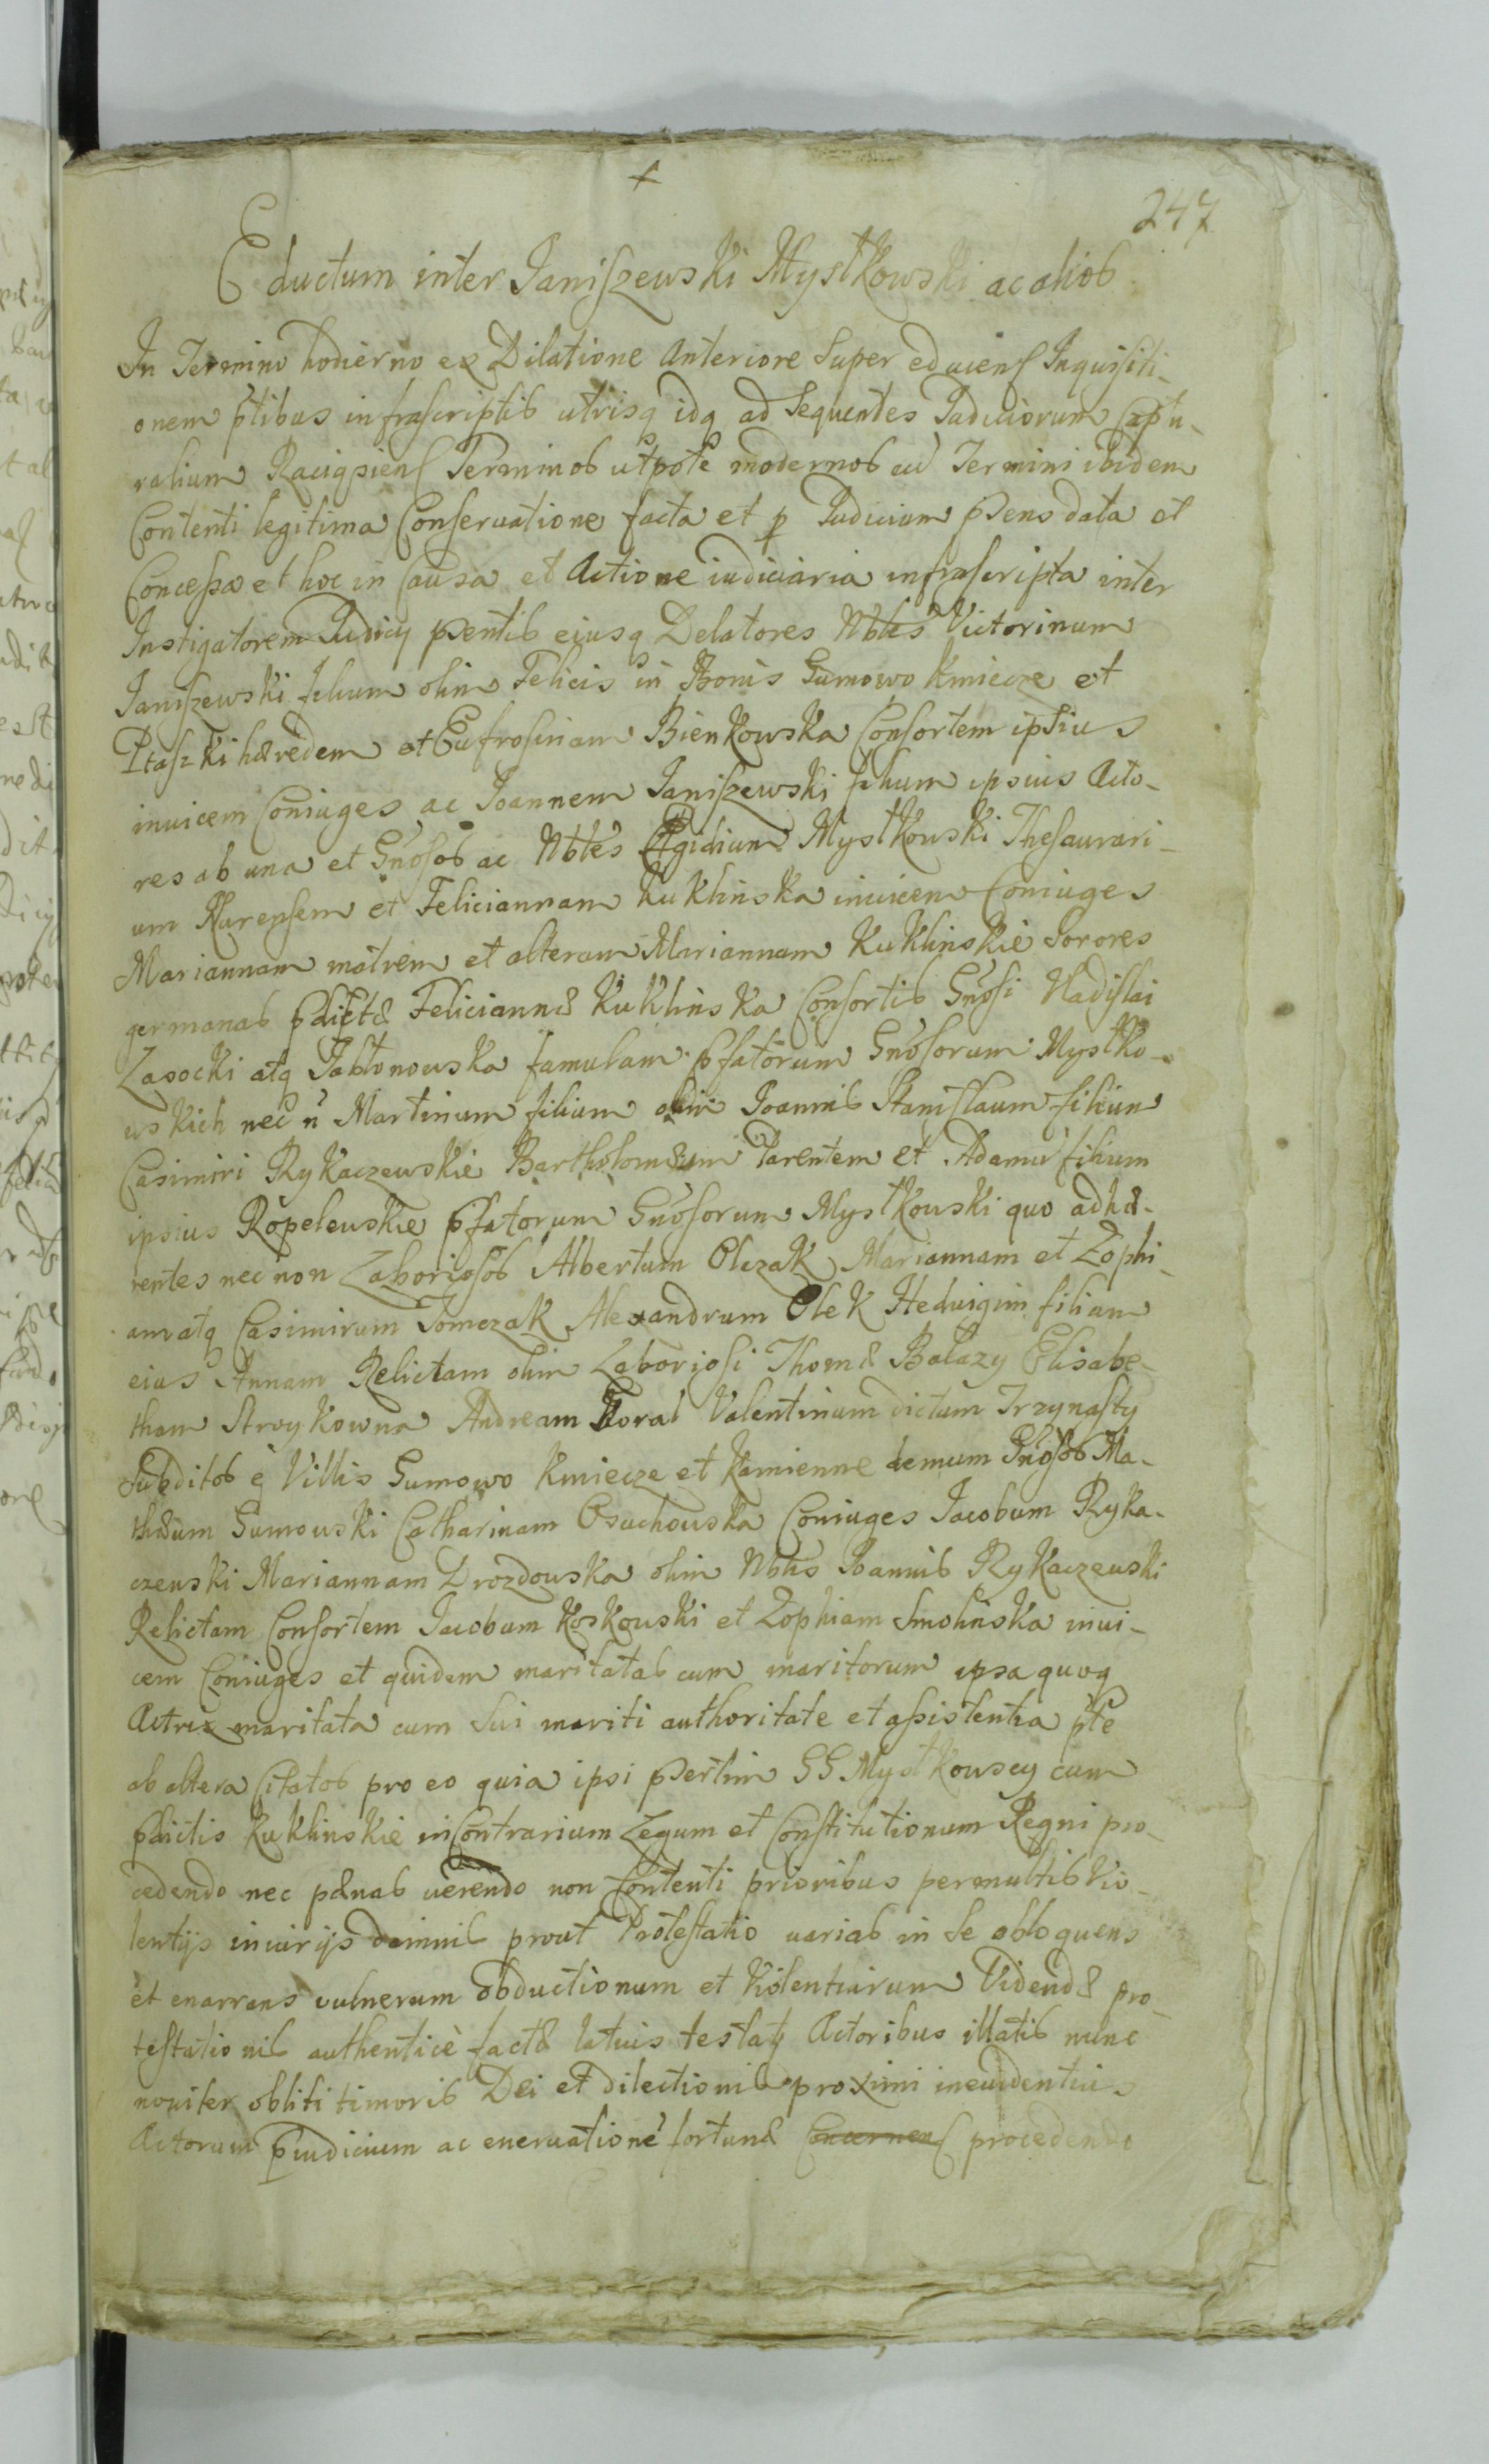 +
247
Eductum inter Janiszewski Mystkowski ac alios
In Termino hodierno ex Dilatione Anteriore Super educens Inquisiti-
onem ptibus infrascriptis utrisq idq ad Sequentes Judiciorum Captu-
ralium Raciąsiens Terminos utpote modernos cu Termini ibidem
Contenti legitima Conservatione facta et p Judicium psens data et
Concessa et hoc in Causa et Actione iudiciaria infrascripta inter
Instigatorem Judicij psentis eiusq Delatores Nbles Victorinum
Janiszewski filium olim Felicis in Bonis Gumowo Kmiecze et
Ptaszki hæredem et Eufrosinam Bienkowska Consortem ipsius
invicem Coniuges ac Joannem Janiszewski filium ipsius Acto-
res ab una et Gnosos ac Nbles Ægidium Mystkowski Thesaurari-
um Nurensem et Feliciannam Kuklinska invicem Coniuges
Mariannam matrem et alteram Mariannam Kuklinskie Sorores
germanas pdictæ Feliciannæ Kuklinska Consortis Gnosi Vladislai
Zasocki atq Jablonowska famulam pfatorum Gnosorum Mystko-
wskich nec n Martinum filium olim Joannis Stanislaum filium
Casimiri Rykaczewskie Bartholomæum Parentem et Adamu filium
ipsius Ropelewskie pfatorum Gnosorum Mystkowski quo adhæ-
rentes nec non Laboriosos Albertum Olczak Mariannam et Zophi-
am atq Casimirum Tomczak Alexandrum Olek Hedvigim filiam
eius Annam Relictam olim Laboriosi Thomæ Balazy Elisabe-
tham Stroykowna Andream Goral Valentinum dictum Trzynasty
Subditos e Villis Gumowo Kmiecze et Kamienne demum Gnosos Ma-
thæum Gumowski Catharinam Osuchowska Coniuges Jacobum Ryka-
czewski Mariannam Drozdowska olim Nblis Joannis Rykaczewski
Relictam Consortem Jacobum Koskowski et Zophiam Smolinska invi-
cem Coniuges et quidem maritatas cum maritorum ipsa quoq
Actrix maritata cum Sui mariti authoritate et assistentia pte
ab altera Citatos pro eo quia ipsi psertim GG Mystkowscy cum
pdictis Kuklinskie in Contrarium Legum et Constitutionum Regni pro-
cedendo nec pænas verendo non Contenti prioribus permultis Vio-
lentijs iniurijs damnis prout Protestatio varias in se obloquens
et enarrans vulnerum obductionum et Violentiarum Videndæ pro-
testationis authentice factæ latius testatz Actoribus illatis nunc
noviter obliti timoris Dei et dilectionis proximi in evidentius
Actorum piudicium ac enervatione fortunæ Concernens procedendo